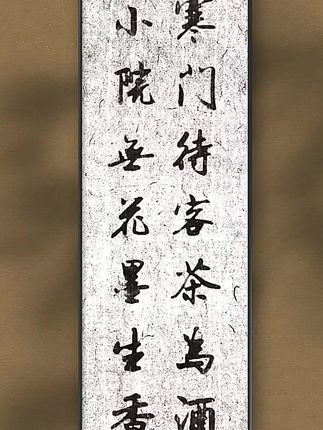 寒门待客茶為酒
小院無花墨生香